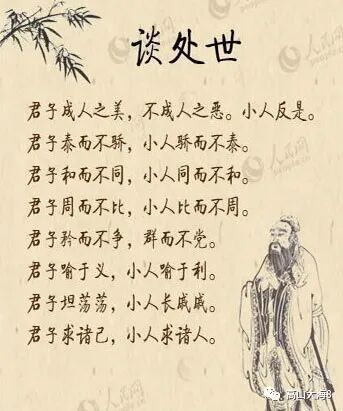 谈处世
君子成人之美，不成人之恶。小人反是。
君子泰而不骄，小人骄而不泰。
君子和而不同，小人同而不和。
君子周而不比，小人比而不周。
君子矜而不争，群而不党。
君子喻于义，小人喻于利。
君子坦荡荡，小人长戚戚。
君子求诸己，小人求诸人。
高山大海8